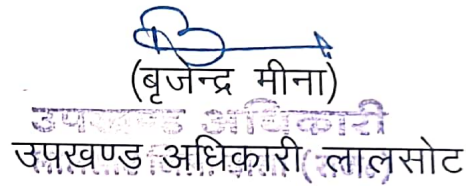 (बृजेन्द्र मीना)
उपखण्ड अधिकारी
उपखण्ड अधिकारी लालसोट